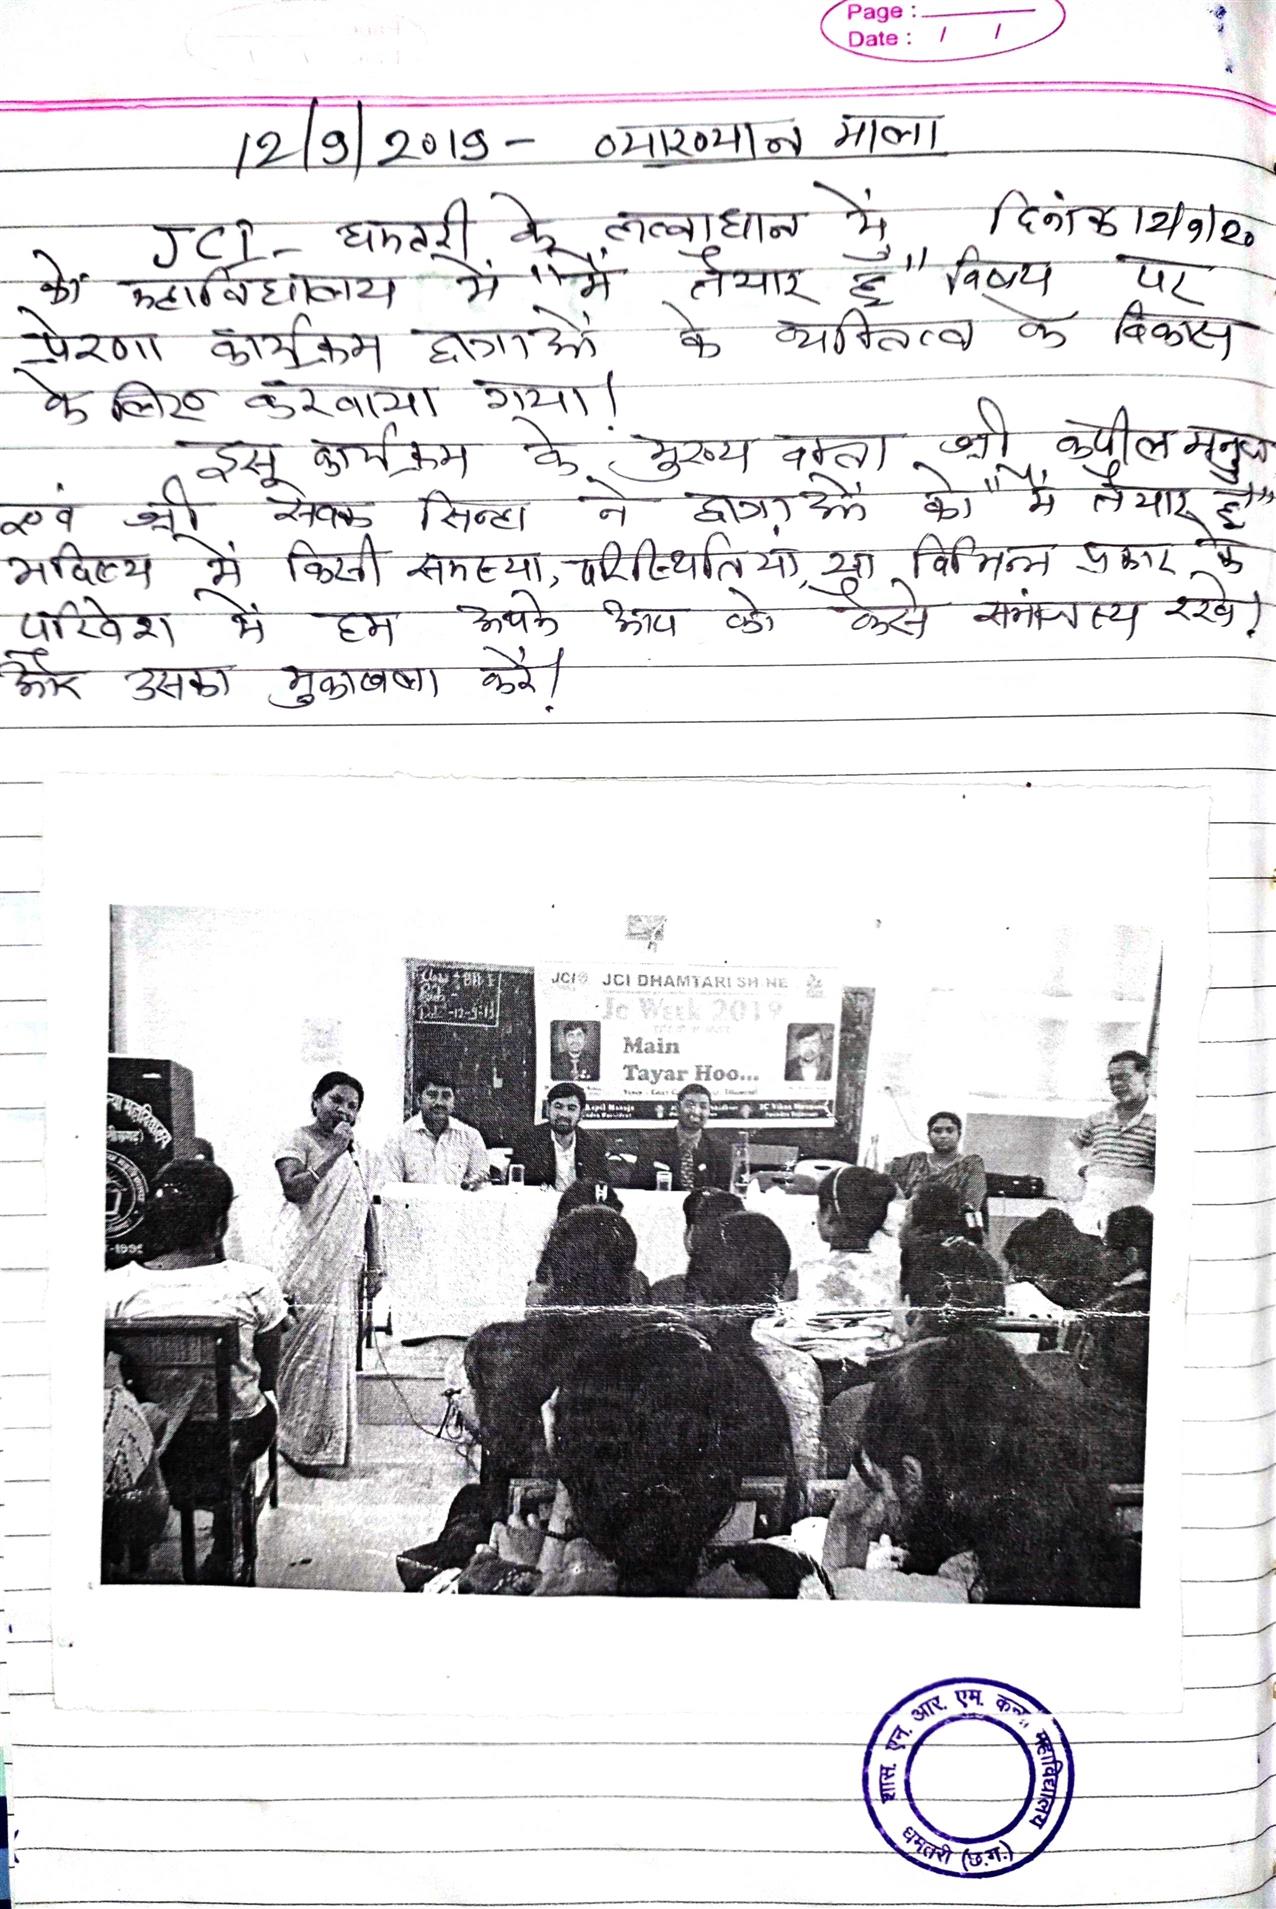 Page :
Date : / /
12/9/2019 - व्याख्यान माला
JCI - धमतरी के तत्वाधान में दिनांक 12/9/20
को महाविद्यालय में "मैं तैयार हूँ" विषय पर
प्रेरणा कार्यक्रम छात्राओं के व्यक्तित्व के विकास
के लिए करवाया गया!
इस कार्यक्रम के मुख्य वक्ता श्री कपील मनुजा
एवं श्री सेवक सिन्हा ने छात्राओं को "मैं तैयार हूँ"
भविष्य में किसी समस्या, परिस्थितियां, या विभिन्न प्रकार के
परिवेश में हम अपने आप को कैसे समंजस्य रखे!
और उसका मुकाबला करें!
JCI JCI DHAMTARI SHINE
Jc Week 2019
Main
Tayar Hoo...
शास. एन. आर. एम. कन्या महाविद्यालय
धमतरी (छ.ग.)